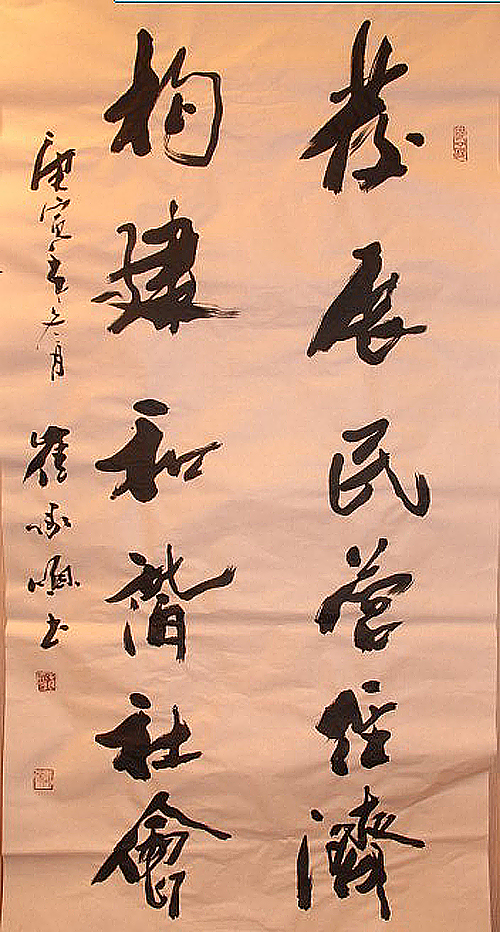 發展民營經濟
構建和諧社會
庚寅年冬月
崔
書